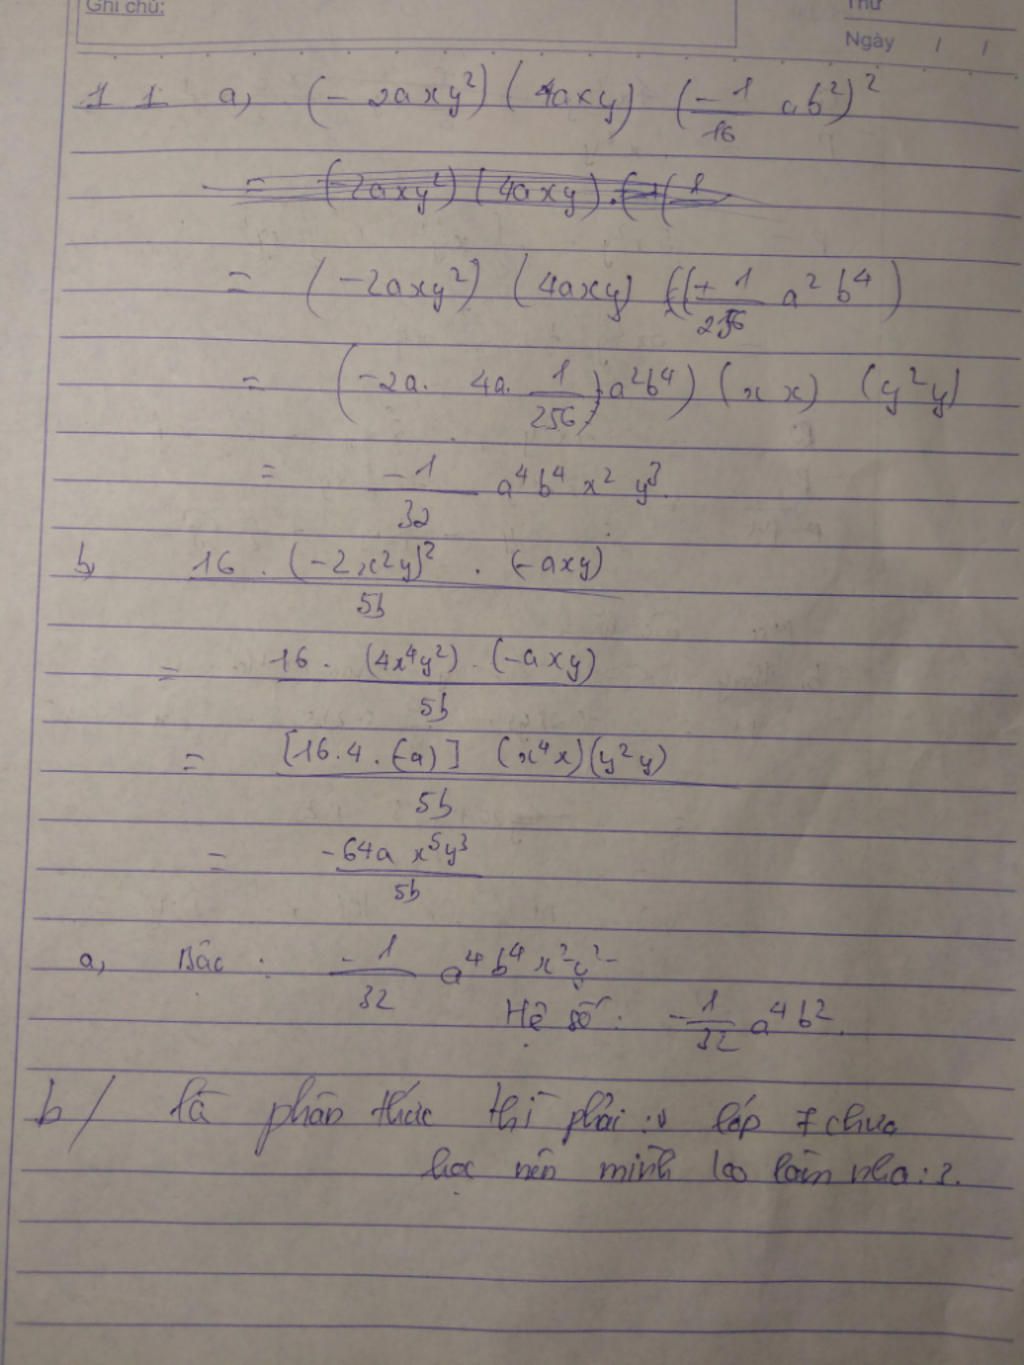 Ghi chú:
Thứ
Ngày / /
1 1 a, (-2axy²) (4axy) (-1/16 ab²)²
= (-2axy²) (4axy) (+1/256 a²b⁴)
= (-2a. 4a. 1/256 a²b⁴) (x x) (y²y)
= -1/32 a⁴b⁴ x² y³.
b, 16 . (-2x²y)² . (-axy) / 5b
= 16 . (4x⁴y²) . (-axy) / 5b
= [16.4.(-a)] (x⁴x)(y²y) / 5b
= -64a x⁵y³ / 5b
a, Bậc : -1/32 a⁴b⁴x²y²
Hệ số : -1/32 a⁴b².
b / là phân thức thì phải :v lớp 7 chưa
học nên mình nha :3.